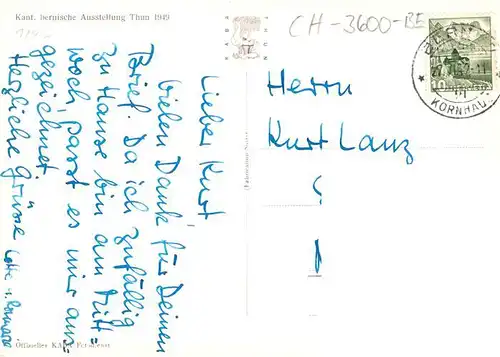 Kant. bernische Ausstellung Thun 1949
Lieber Kurt
vielen Dank für Deinen
Brief. Da ich zufällig
zu Hause bin am Mitt=
woch, passt es mir aus=
gezeichnet.
Herzliche Grüsse
CH-3600-BE
Herrn
Kurt Lanz
BERN
KORNHAUS
Offizielles